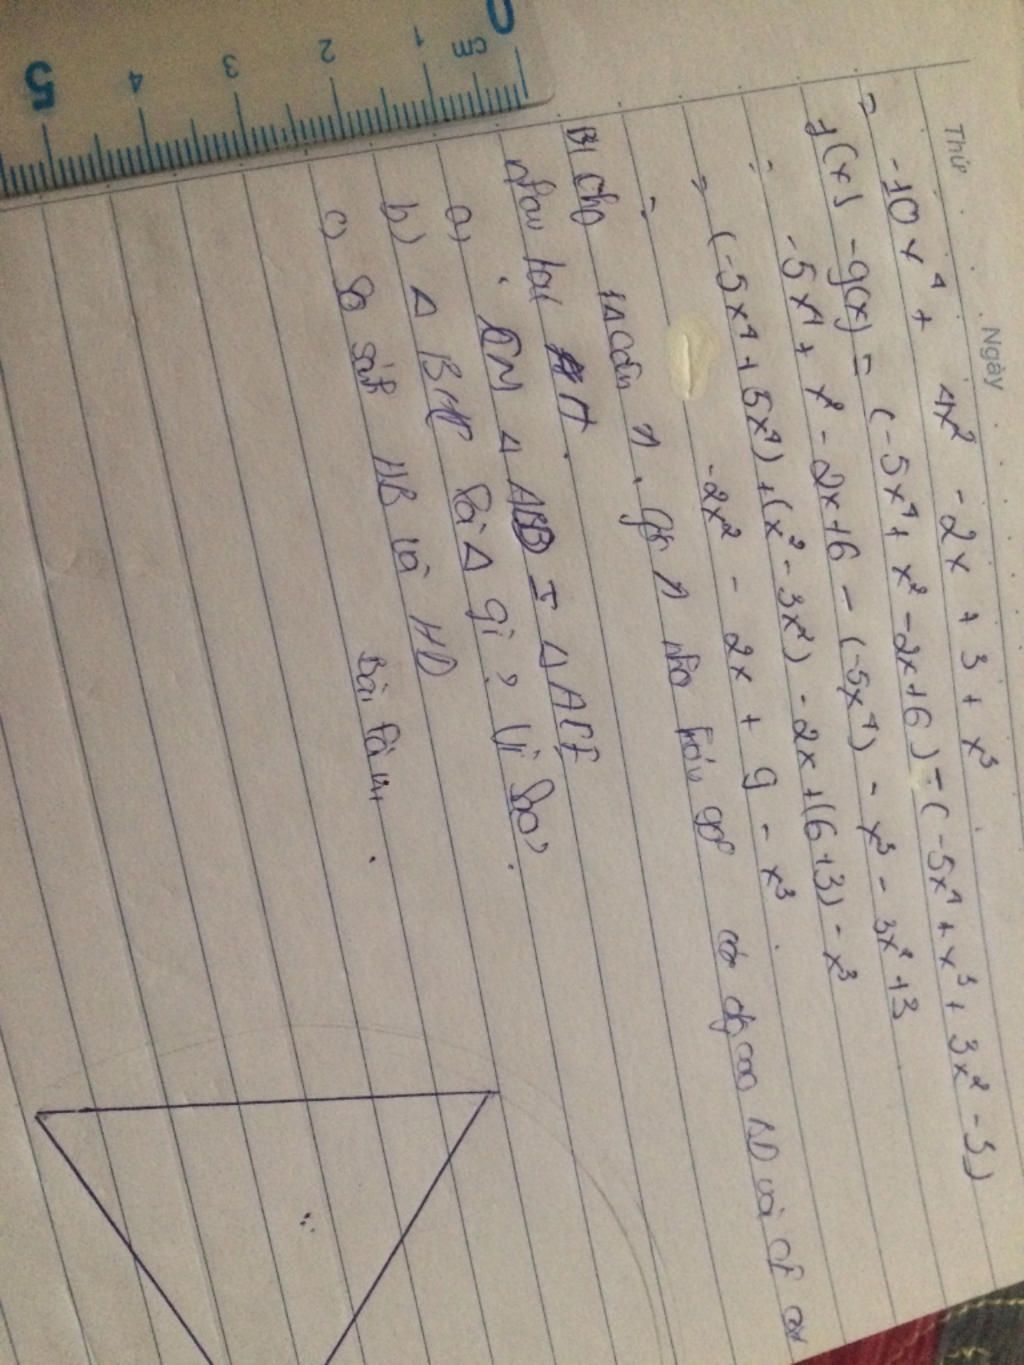 Thứ
Ngày
= -10x⁴ + 4x² - 2x + 3 + x³
f(x) - g(x) = (-5x⁴ + x² - 2x + 6) - (-5x⁴ + x³ + 3x² - 3)
= -5x⁴ + x² - 2x + 6 - (-5x⁴) - x³ - 3x² + 3
= (-5x⁴ + 5x⁴) + (x² - 3x²) - 2x + (6 + 3) - x³
= -2x² - 2x + 9 - x³.
B4 Cho Δ Cân A, góc A nhỏ hơn 90° các đg cao BD và CE cắt
nhau tại H.
a) CM Δ ABD = Δ ACE
b) Δ BHC là Δ gì? Vì sao?
c) So sánh HB và HD
Bài làm.
0 cm 1 2 3 4 5